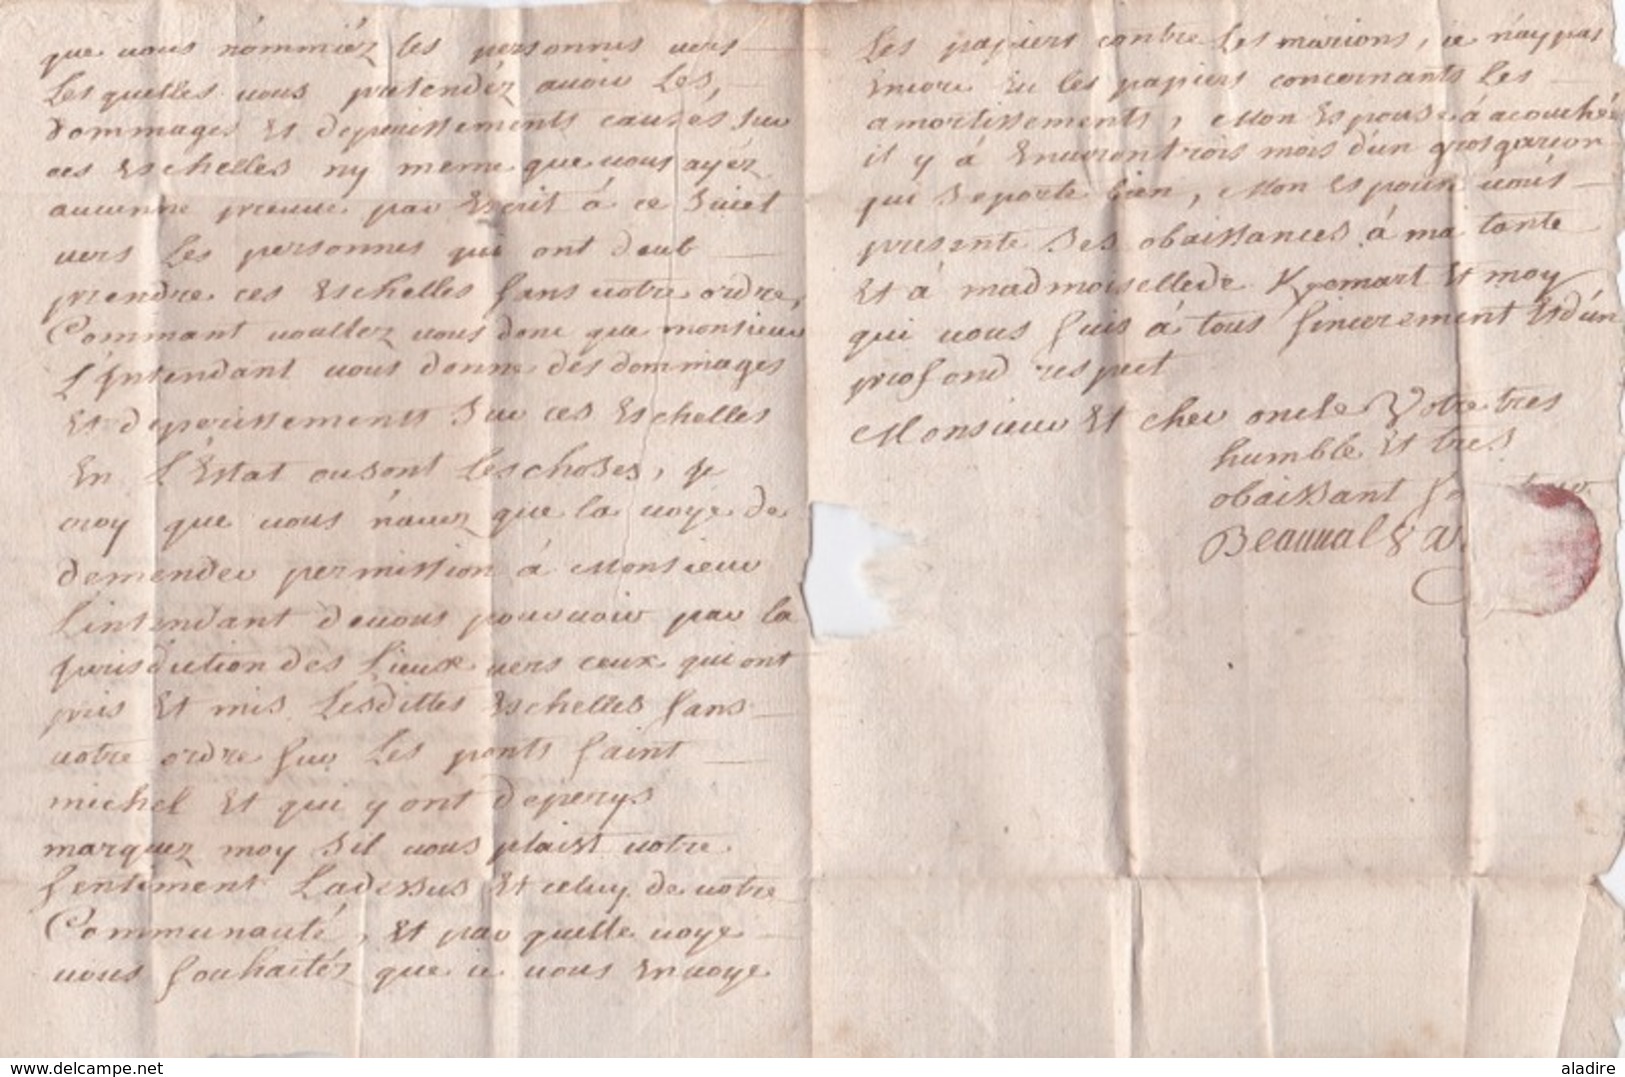 que vous nommiéz les personnes vers
Les quelles vous pretendéz avoir Les,
dommages Et deperissements causés sur
ces Eschelles ny meme que vous ayéz
aucunne preuve par Escrit á ce Suiet
vers Les personnes qui ont deub
prendre ces Eschelles sans votre ordre,
Commant voullez vous donc que monsieur
L'Intendant vous donne des dommages
Et deperissements Sur ces Eschelles
En L'Estat ou sont Les choses, je
croy que vous n'avez que la voye de
demender permission á Monsieur
L'intendant de vous pourvoir par la
jurisdiction des Lieux vers ceux qui ont
pris Et mis Lesdittes Eschelles sans
votre ordre sur Les ponts saint
michel Et qui y ont deperys
marquez moy s'il vous plaist votre
sentiment Ladessus Et celuy de votre
Communauté, Et par quelle voye
vous souhaitéz que ie vous Envoye
Les papiers contre Les marions, ie n'ay pas
Encore Eu les papiers concernants Les
amortissements, Mon Espouse á acouché
il y á Environ trois mois d'un gros garçon
qui se porte bien, Mon Espouse vous
presente Ses obaissances á ma tante
Et á madmoiselle de Kgomart Et moy
qui vous suis á tous sincerement Et d'un
profond respect
Monsieur Et cher oncle Votre tres
humble Et tres
obaissant
Beauval
www.delcampe.net
aladire